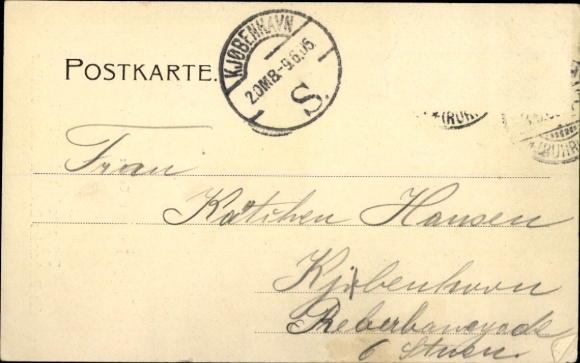 POSTKARTE.
KJØBENHAVN
2.OMB.-9.6.05
S.
*(RUHR
(RUHR
Frau
Kätchen Hansen
Kjøbenhavn
Reberbanegade
6 Stuen